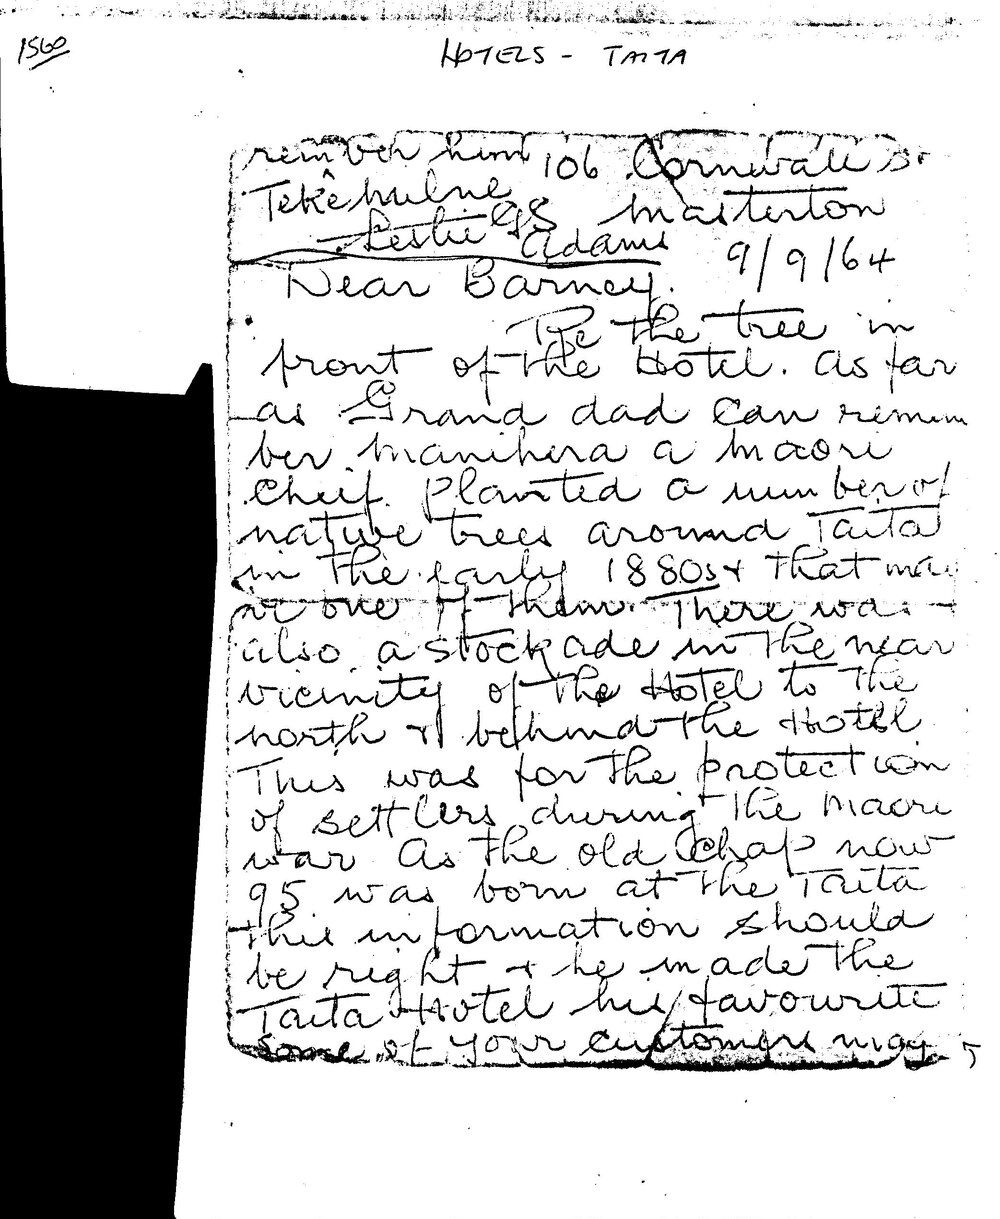 1560
HOTELS - TAITA
rember him 106 Cornwall St
Leslie GS Masterton
Adams 9/9/64
Dear Barney.
Re the tree in
front of the Hotel. As far
as Grand dad can remem
ber Manihera a Maori
Cheif. Planted a number of
native trees around Taita
in the early 1880s & that may
be one of them. There was
also a stockade in the near
vicinity of the Hotel to the
north & behind the Hotel
This was for the protection
of settlers during the Maori
war As the old Chap now
95 was born at the Taita
this information should
be right & he made the
Taita Hotel his favourite
some of your customers may